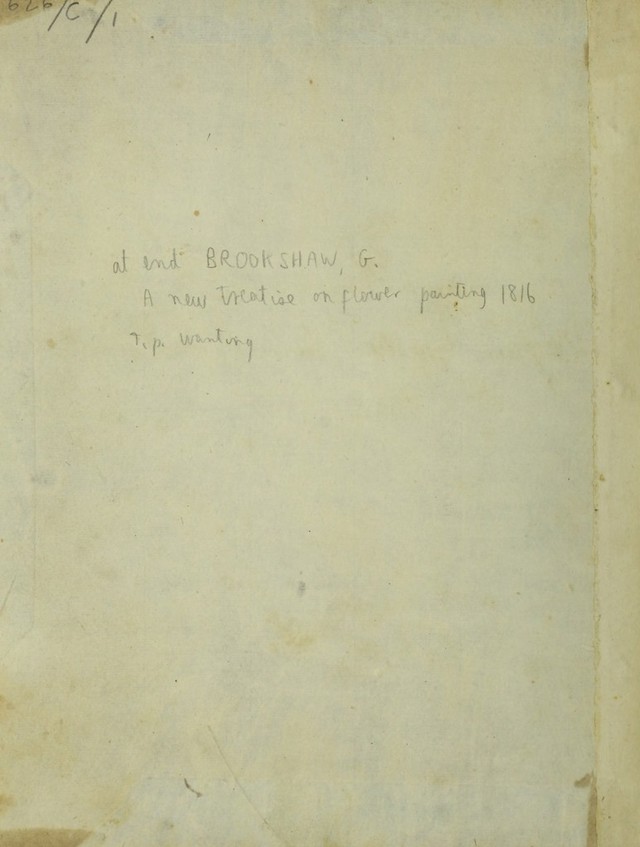 626/C/1
at end BROOKSHAW, G.
A new treatise on flower painting 1816
T.p. wanting